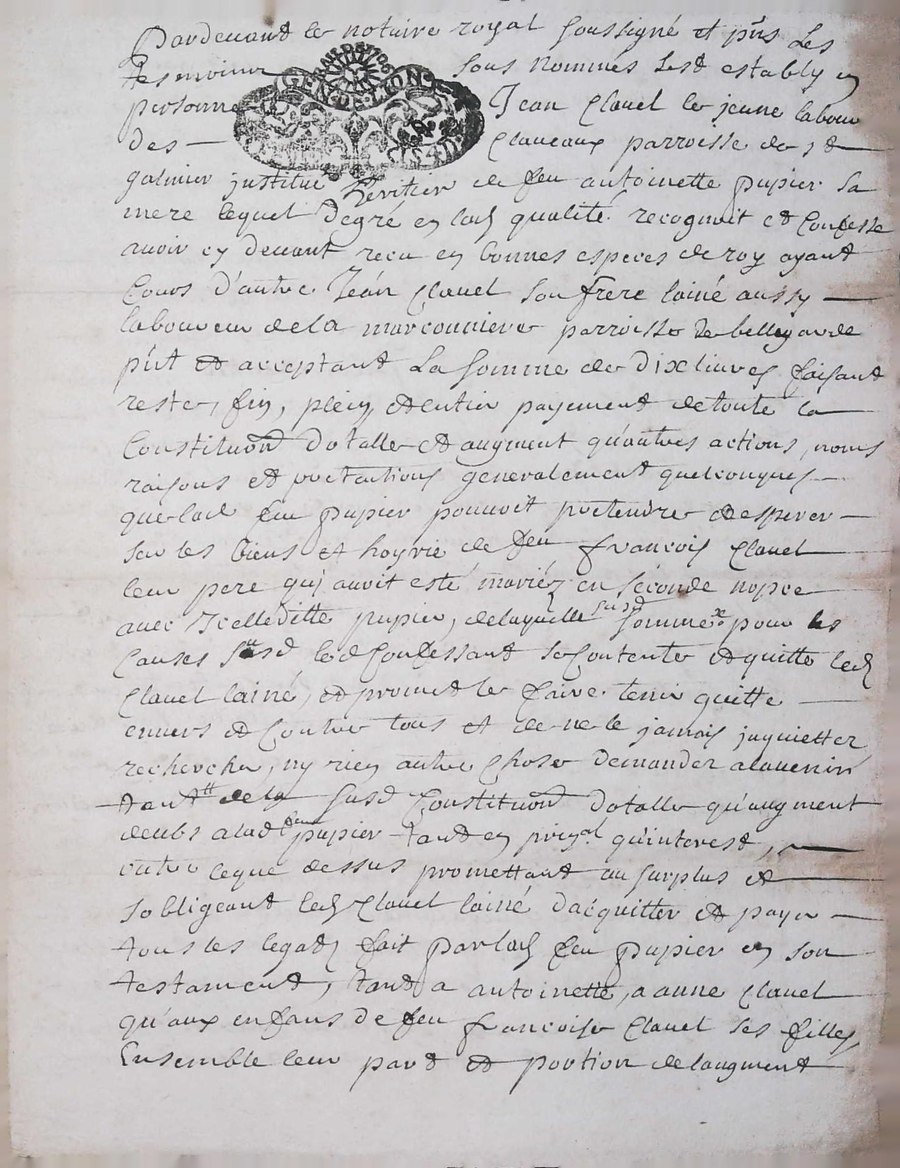 Pardevant le notaire royal soussigné et pns les
tesmoins sous nommés s'est estably en
GEN·DE·LION
personne Jean Clavel le jeune labour
des — Claveaux parroisse de st
galmier justitué heritier de feu antoinette pupier sa
mere lequel degré en lad qualité recognoit et confesse
avoir cy devant recu en bonnes especes de roy ayant
Cours d'autre Jéan Clavel son frere lainé aussy —
laboureur de la marconniere parroisse de bellegarde
pnt et acceptant La somme de Dix livres faisant
reste, fin, plein, et entier payement de toute la
Constituon dotalle et augment qu'autres actions, noms
raisons et pretentions generalement quelconques —
que lad feu pupier pouvoit pretendre et esperer —
sur les biens et hoyrie de feu francois Clavel
leur pere qui avoit esté mariéz en séconde nopce
avec Icelleditte pupier, de laquelle susd somme pour les
Causes susd led Confessant se Contente et quitte led
Clavel lainé, et promet le faire tenir quitte —
envers et Contre tous et de ne le jamais jnquietter
rechercher, ny rien autre Chose demander a lavenir
tant de la susd Constituon dotalle qu'augment
deubs a lad feue pupier tant en prinal qu'interest,
outre ce que dessus promettant au surplus et —
sobligeant led Clavel lainé d'acquitter et payer —
tous les legats fait par lad feu pupier en son
testament, tant a antoinette, a anne Clavel
qu'aux enfans de feu francoise Clavel ses filles,
Ensemble leur part et portion de laugment